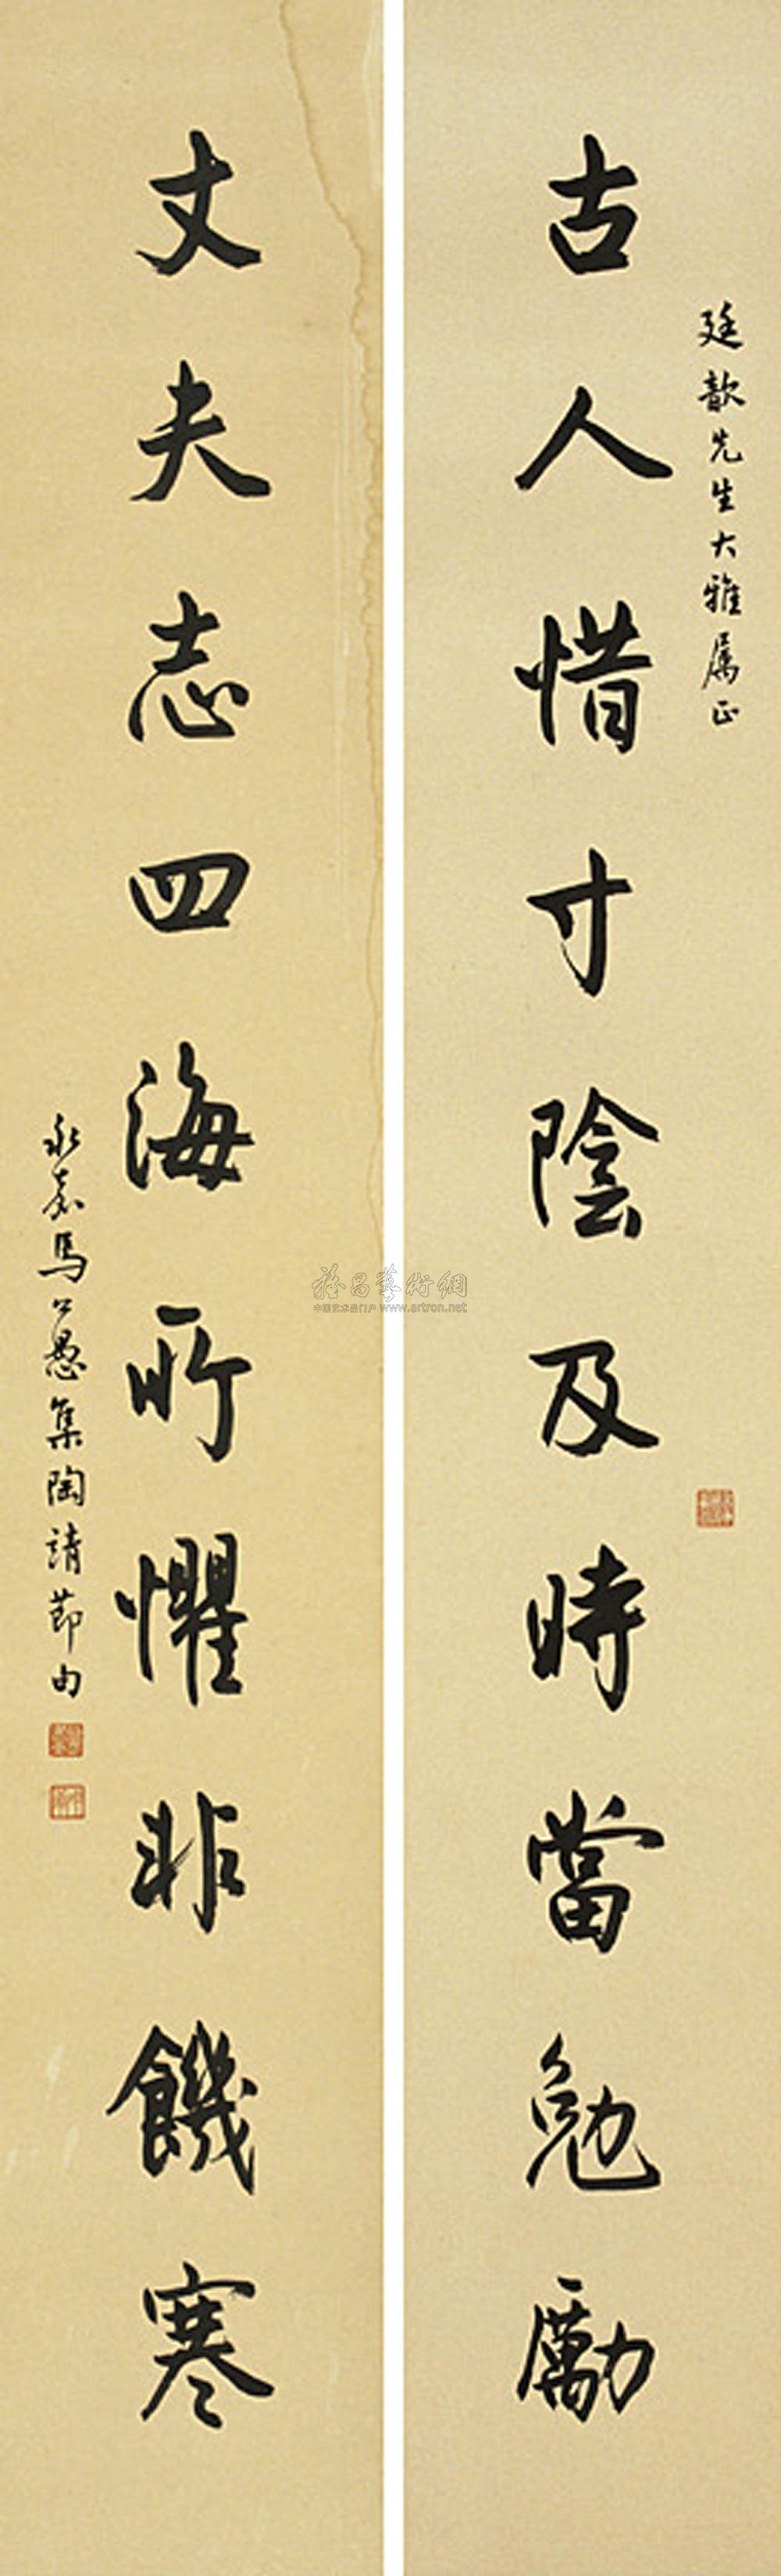 廷歆先生大雅屬正
古人惜寸陰及時當勉勵
丈夫志四海所懼非饑寒
永嘉馬公愚集陶靖節句
雅昌藝術網
中国艺术品门户 www.artron.net